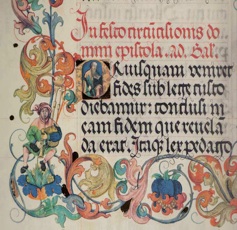 In festo circũcisionis do
mini epistola. ad. Gal.
Riusquam veniret
fides sub lege custo
diebamur: conclusi in
eam fidem que revelã
da erat. Itaq; lex pedago